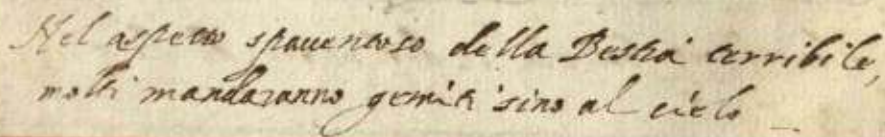 Nel aspetto spauentoso della Bestia terribile,
molti mandaranno gemiti sino al cielo